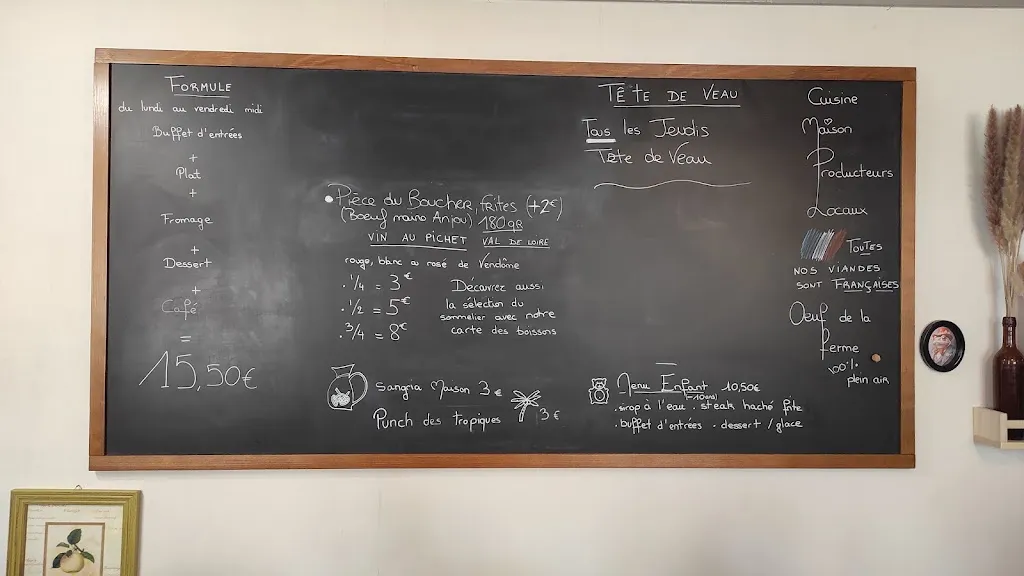 FORMULE
du lundi au vendredi midi
Buffet d'entrées
+
Plat
+
Fromage
+
Dessert
+
Café
=
15,50€
• Pièce du Boucher, frites (+2€)
(Boeuf maine Anjou) 180gr
VIN AU PICHET VAL DE LOIRE
rouge, blanc ou rosé de Vendôme
. 1/4 = 3€
. 1/2 = 5€
. 3/4 = 8€
Découvrez aussi
la sélection du
sommelier avec notre
carte des boissons
Sangria Maison 3€
Punch des tropiques 3€
TÊTE DE VEAU
Tous les Jeudis
Tête de Veau
Menu Enfant 10,50€
(-10ans)
. sirop à l'eau . steak haché frite
. buffet d'entrées . dessert / glace
Cuisine
Maison
Producteurs
Locaux
TOUTES
NOS VIANDES
SONT FRANÇAISES
Oeuf de la
ferme
100%
plein air